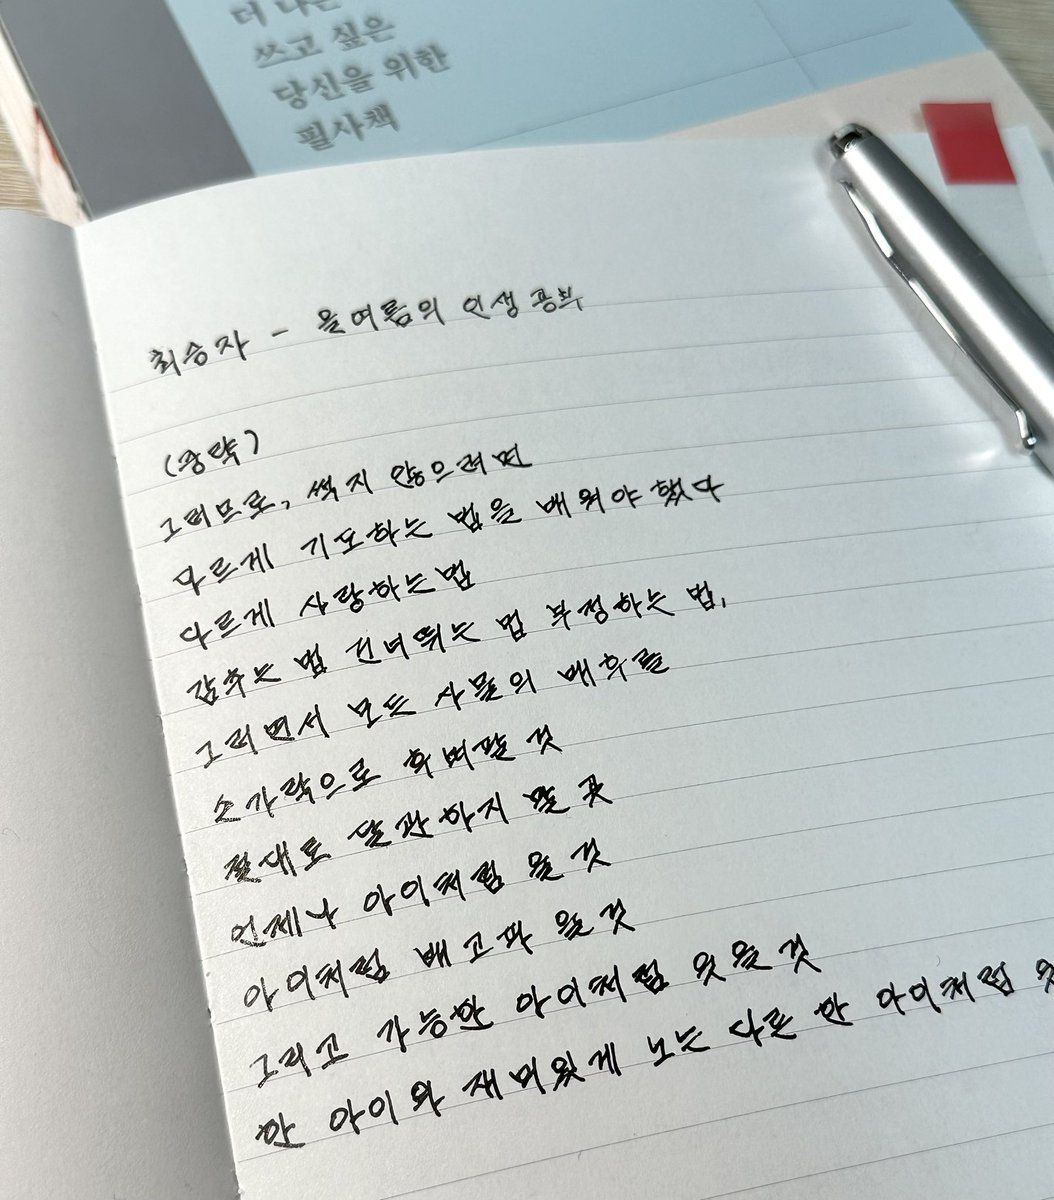 더 나은
쓰고 싶은
당신을 위한
필사책
최승자 - 올여름의 인생 공부
(중략)
그러므로, 썩지 않으려면
다르게 기도하는 법을 배워야 했다
다르게 사랑하는 법
감추는 법 건너뛰는 법 부정하는 법,
그러면서 모든 사물의 배후를
손가락으로 후벼팔 것
절대로 달관하지 말 것
언제나 아이처럼 울 것
아이처럼 배고파 울 것
그리고 가능한 아이처럼 웃을 것
한 아이와 재미있게 노는 다른 한 아이처럼